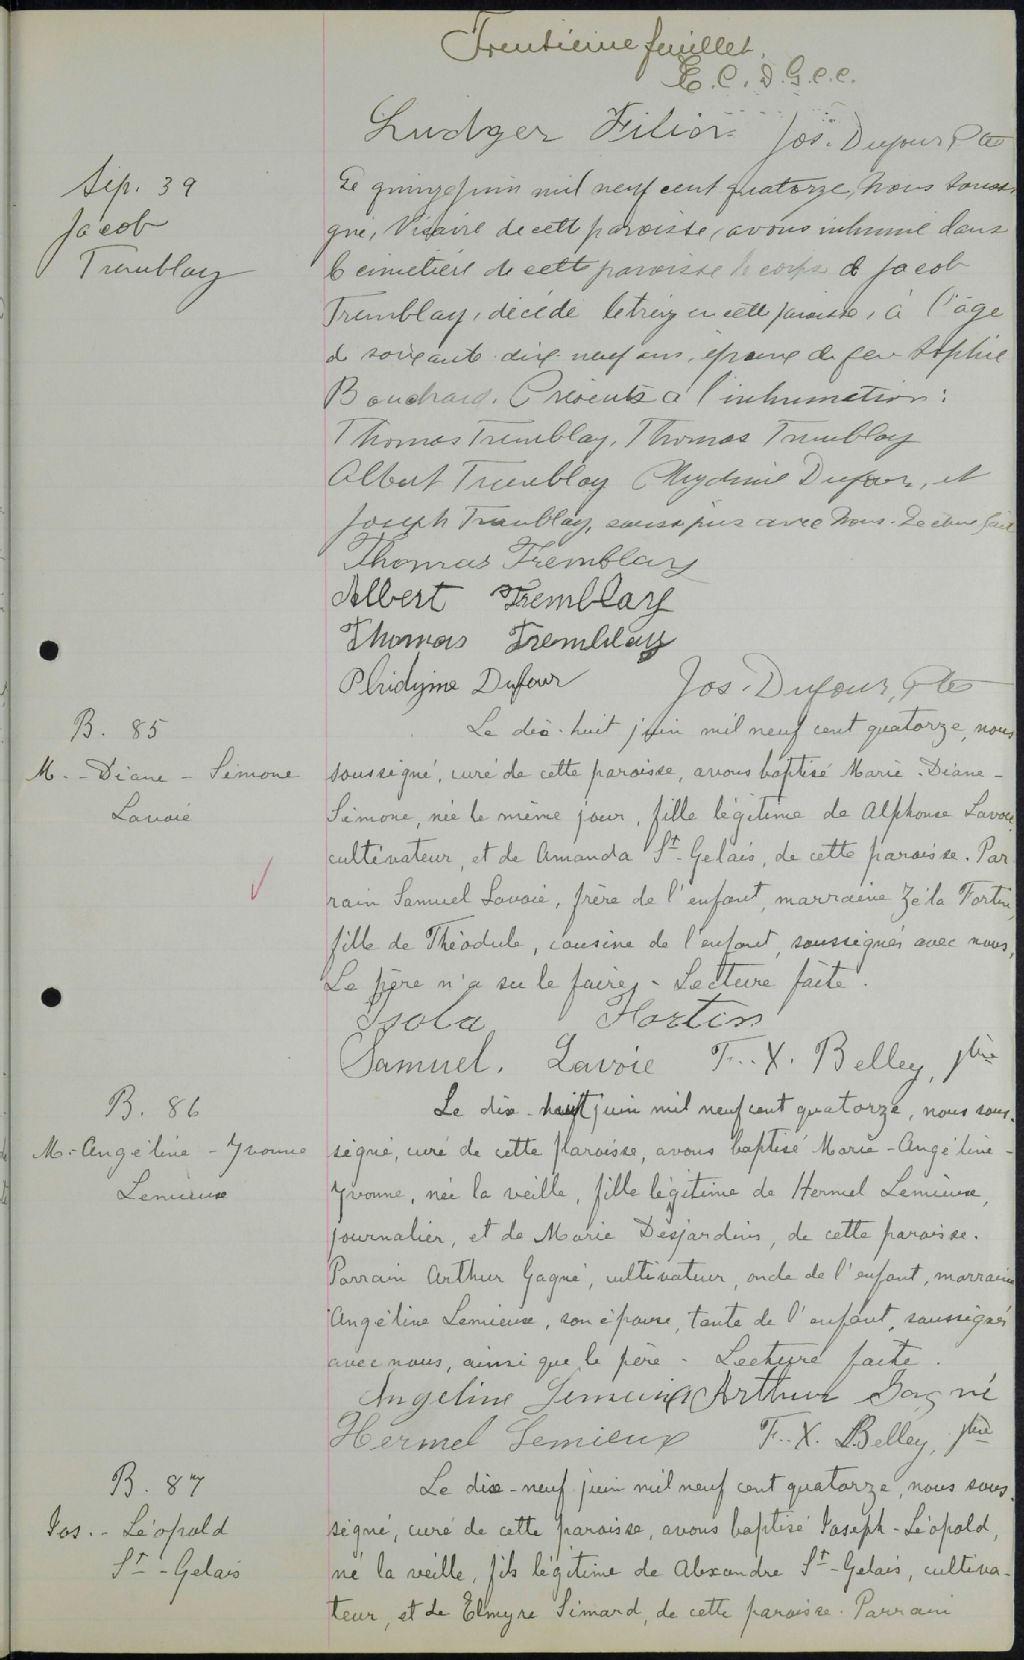 Trentième feuillet.
E. C. D. G. C. C.
Ludger Filion Jos. Dufour, Ptre
Sep. 39
Jacob
Tremblay
Le quinze juin mil neuf cent quatorze, nous soussi
gné, Vicaire de cette paroisse, avons inhumé dans
le cimetière de cette paroisse le corps de Jacob
Tremblay, décédé le treize en cette paroisse, à l'âge
de soixante-dix-neuf ans, époux de feu Sophie
Bouchard. Présents à l'inhumation:
Thomas Tremblay, Thomas Tremblay
Albert Tremblay Phydime Dufour, et
Joseph Tremblay, avec nous. Lecture faite
Thomas Tremblay
Albert Tremblay
Thomas Tremblay
Phidyme Dufour Jos. Dufour, Ptre
B. 85
M.-Diane-Simone
Lavoie
Le dix-huit juin mil neuf cent quatorze, nous
soussigné, curé de cette paroisse, avons baptisé Marie-Diane-
Simone, née le même jour, fille légitime de Alphonse Lavoie,
cultivateur, et de Amanda St-Gelais, de cette paroisse. Par
rain Samuel Lavoie, frère de l'enfant, marraine Zéla Fortin,
fille de Théodule, cousine de l'enfant, soussignés avec nous,
Le père n'a su le faire. - Lecture faite.
Isola Fortin
Samuel. Lavoie F.-X. Belley, ptre
B. 86
M.-Angéline-Yvonne
Lemieux
Le dix-huit juin mil neuf cent quatorze, nous sous-
signé, curé de cette paroisse, avons baptisé Marie-Angéline-
Yvonne, née la veille, fille légitime de Hermel Lemieux,
journalier, et de Marie Desjardins, de cette paroisse.
Parrain Arthur Gagné, cultivateur, oncle de l'enfant, marraine
Angéline Lemieux, son épouse, tante de l'enfant, soussignés
avec nous, ainsi que le père. - Lecture faite.
Angeline Lemieux Arthur Gagné
Hermel Lemieux F.-X. Belley, ptre
B. 87
Jos.-Léopold
St-Gelais
Le dix-neuf juin mil neuf cent quatorze, nous sous-
signé, curé de cette paroisse, avons baptisé Joseph-Léopold,
né la veille, fils légitime de Alexandre St-Gelais, cultiva-
teur, et de Elmyre Simard, de cette paroisse. Parrain